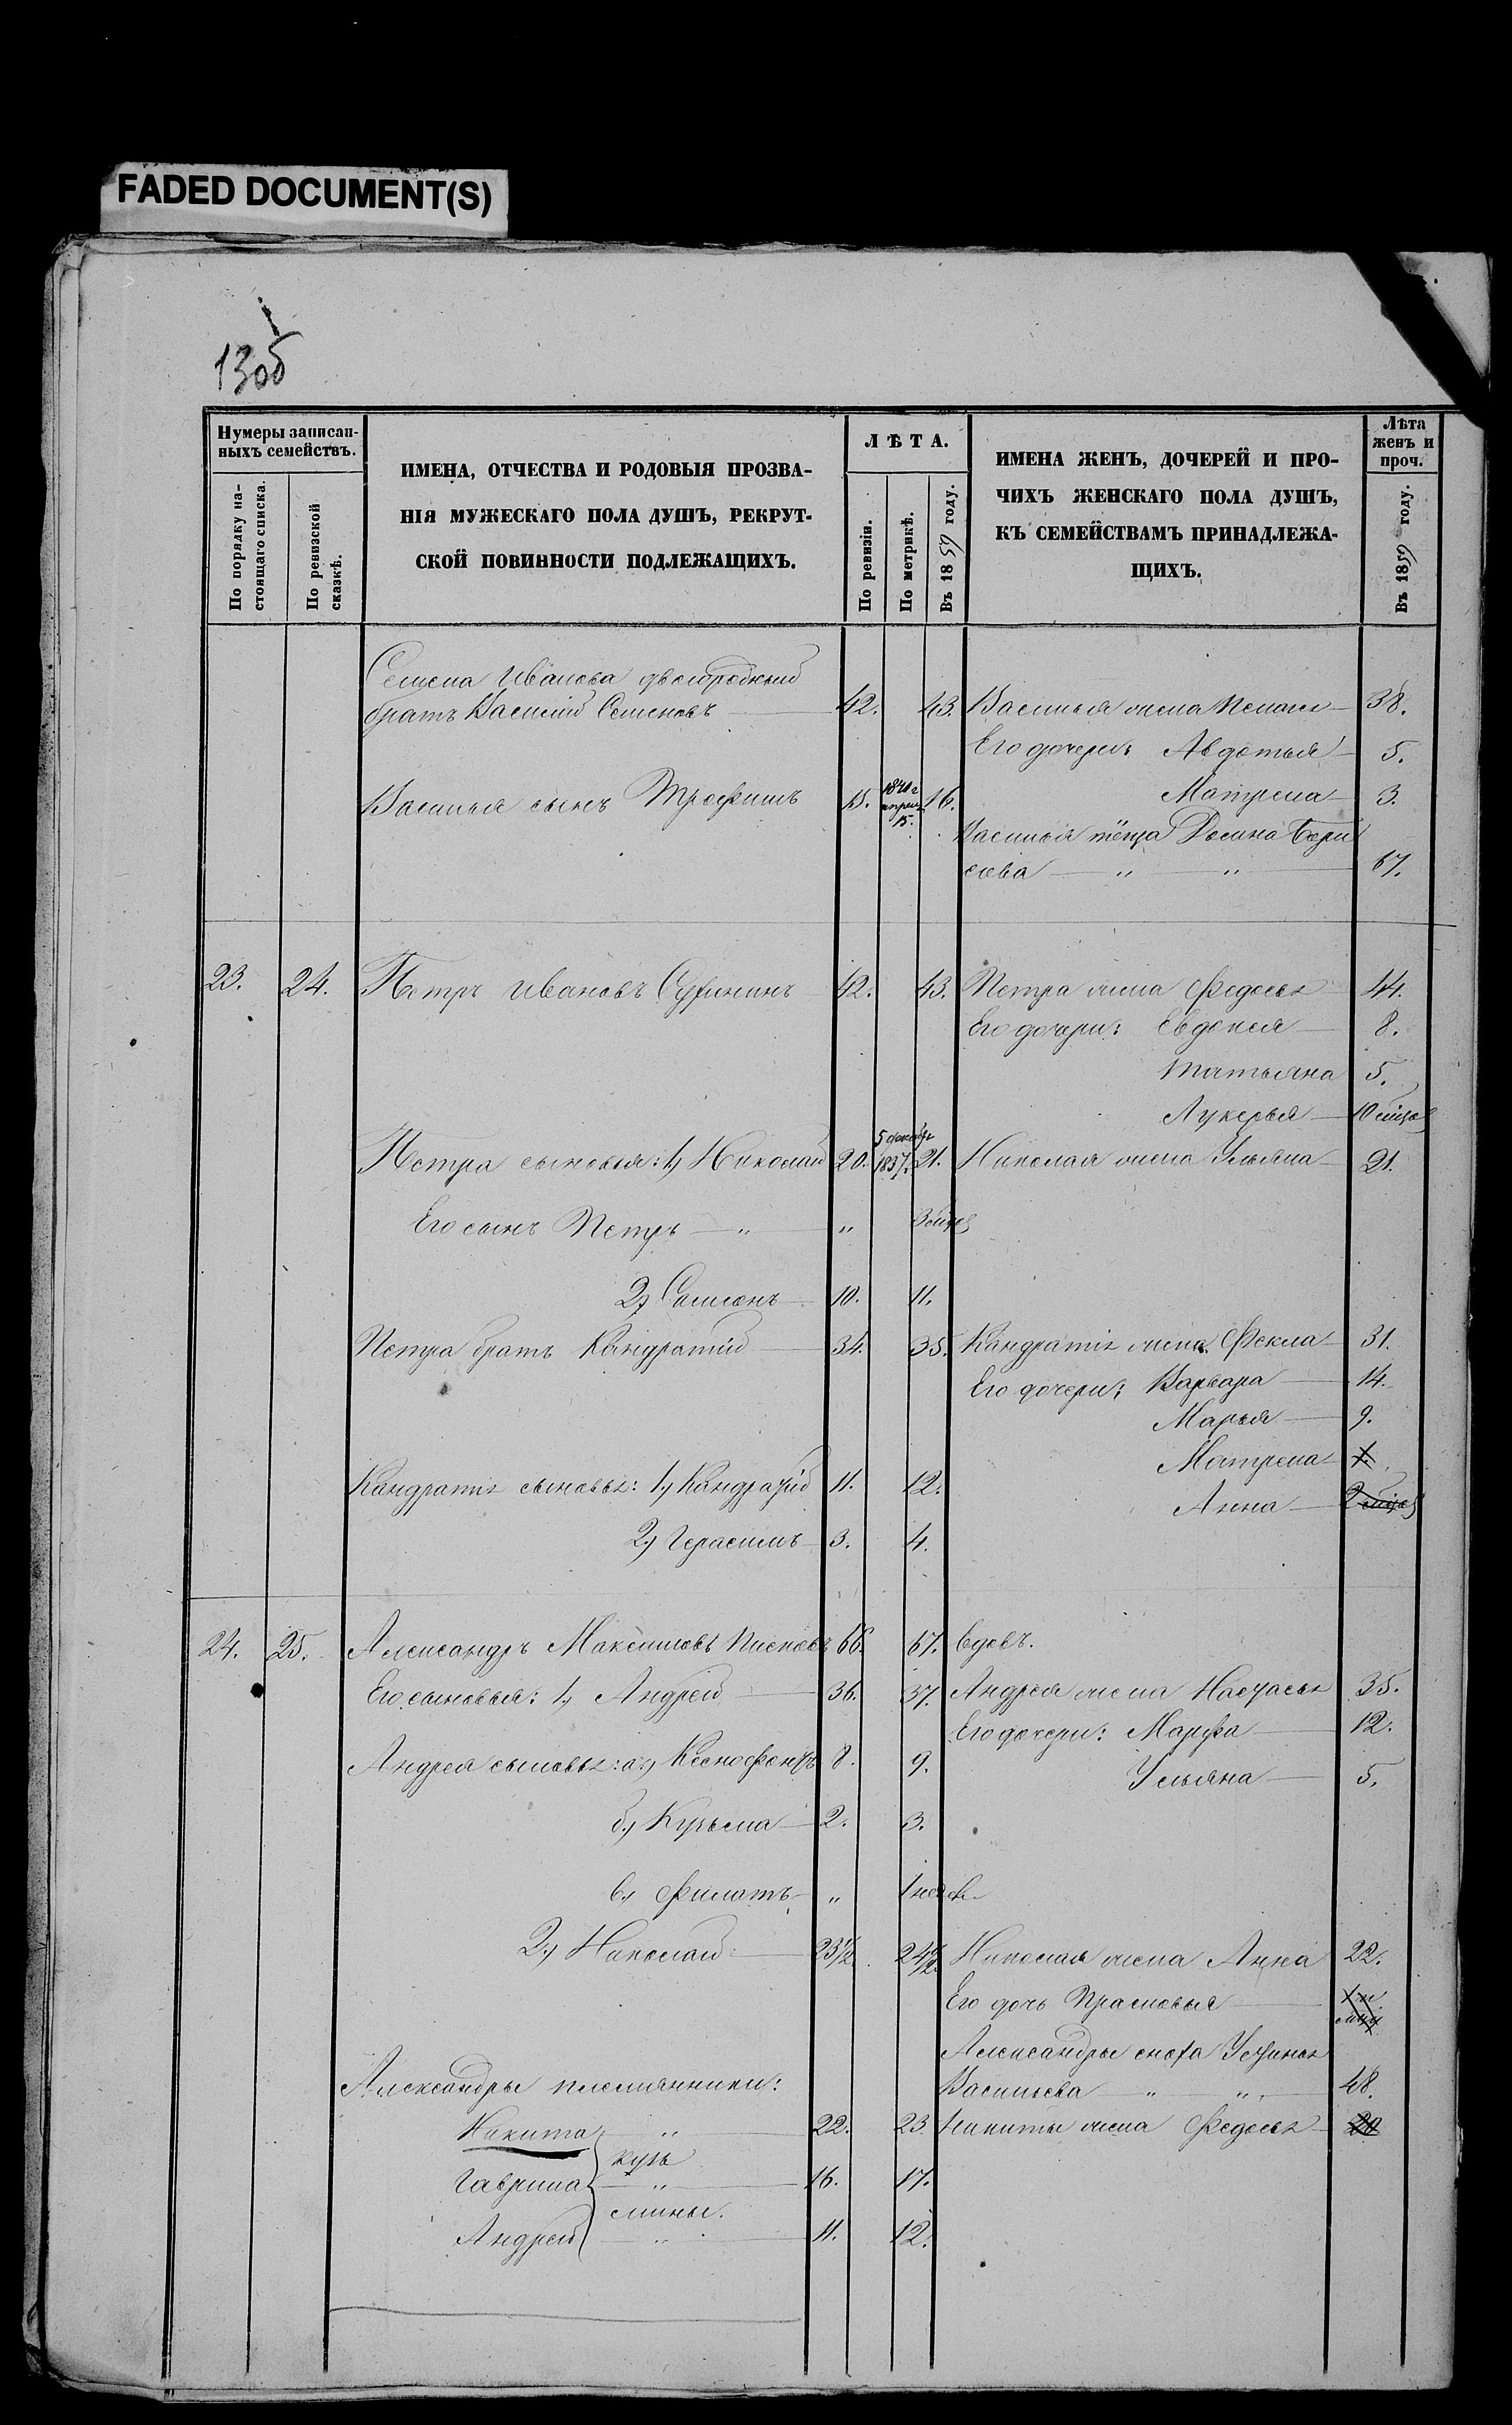 FADED DOCUMENT(S)
13об
Нумеры записан-
ныхъ семействъ.
По порядку на-
стоящаго списка.
По ревизской
сказкѣ.
ИМЕНА, ОТЧЕСТВА И РОДОВЫЯ ПРОЗВА-
НІЯ МУЖЕСКАГО ПОЛА ДУШЪ, РЕКРУТ-
СКОЙ ПОВИННОСТИ ПОДЛЕЖАЩИХЪ.
ЛѢТА.
По ревизіи.
По метрикѣ.
Въ 1859 году.
ИМЕНА ЖЕНЪ, ДОЧЕРЕЙ И ПРО-
ЧИХЪ ЖЕНСКАГО ПОЛА ДУШЪ,
КЪ СЕМЕЙСТВАМЪ ПРИНАДЛЕЖА-
ЩИХЪ.
Лѣта
женъ и
проч.
Въ 1859 году.
Семена Иванова двоюродный
братъ Василій Семеновъ 42. 43. Василья жена 38.
Его дочери: Авдотья 5.
Василья сынъ Трофимъ 15. 1841г апреля 15. 16. Матрена 3.
Василья тёща Домна Бори
сова " " 67.
23. 24. Петръ Ивановъ 42. 43. Петра жена Федосья 44.
Его дочери: Евдокея 8.
Татьяна 5.
Лукерья 10 мѣсяц
Петра сыновья: 1, Николай 20. 5 декабря 1837. 21. Николая жена Ульяна 21.
Его сынъ Петръ " " 3 мѣсяц
2, Самсонъ 10. 11.
Петра братъ Кандратій 34. 35. Кандратья жена Фекла 31.
Его дочери: Варвара 14.
Марья 9.
Матрена 1.
Кандратья сыновья: 1, Кандратій 11. 12. Анна 2 мѣсяц
2, Герасимъ 3. 4.
24. 25. Александръ Максимовъ 66. 67. вдовъ.
Его сыновья: 1, Андрей 36. 37. Андрея жена Настасья 35.
Его дочери: Марфа 12.
Андрея сыновья: а, Ксенофонтъ 8. 9. Ульяна 5.
б, Кузьма 2. 3.
в, Филатъ " 1 недѣл.
2, Николай 23 1/2 24 1/2 Николая жена Анна 22.
Его дочь Прасковья
Александры сноха Устинья
Александры племянники: Васильева " " 48.
Никита " 22. 23. Никиты жена Федосья 20
кузь
Гаврила " 16. 17.
мины.
Андрей " 11. 12.